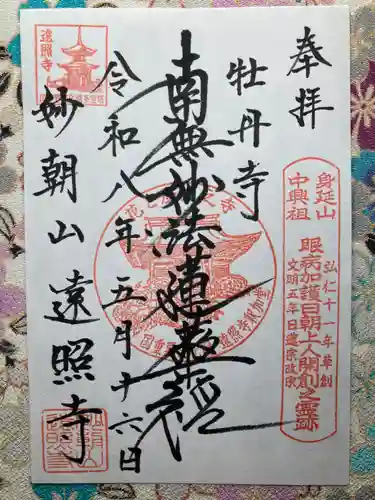 奉拝
身延山
中興祖
弘仁十一年草創
眼病加護日朝上人開創之霊跡
文明五年日遊宗改宗
牡丹寺
南無妙法蓮華経
令和八年五月十六日
遠照寺
妙朝山 遠照寺